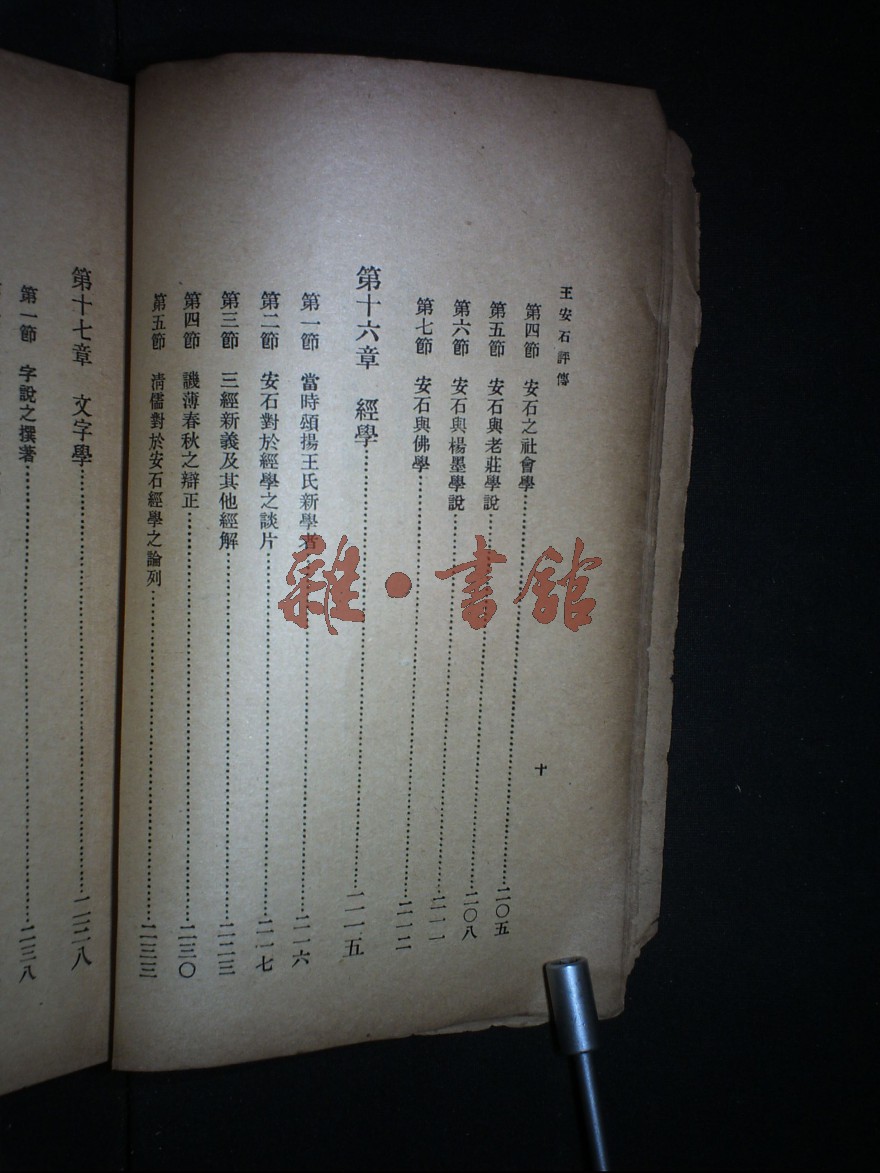 王安石評傳
十
第四節 安石之社會學……二〇五
第五節 安石與老莊學說……二〇八
第六節 安石與楊墨學說……二一一
第七節 安石與佛學……二一二
第十六章 經學……二一五
第一節 當時頌揚王氏新學者……二一六
第二節 安石對於經學之談片……二一七
第三節 三經新義及其他經解……二二三
第四節 譏薄春秋之辯正……二三〇
第五節 清儒對於安石經學之論列……二三三
第十七章 文字學……二三八
第一節 字說之撰著……二三八
雜·書館